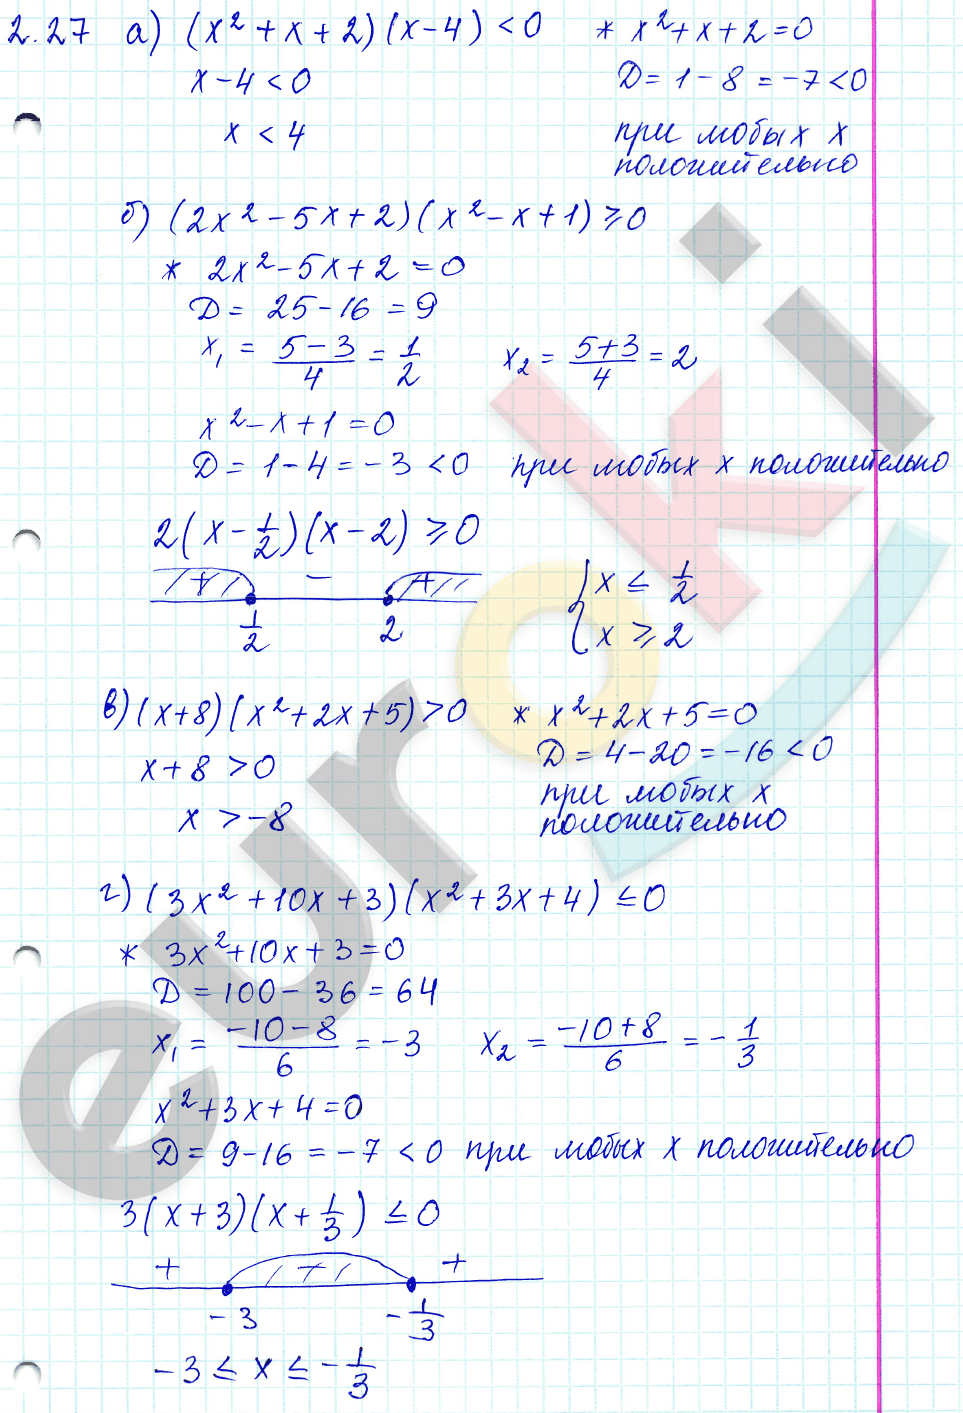 2.27 а) (x² + x + 2)(x - 4) < 0 * x² + x + 2 = 0
x - 4 < 0 D = 1 - 8 = -7 < 0
x < 4 при любых x
положительно
б) (2x² - 5x + 2)(x² - x + 1) ≥ 0
* 2x² - 5x + 2 = 0
D = 25 - 16 = 9
x₁ = (5 - 3)/4 = 1/2 x₂ = (5 + 3)/4 = 2
x² - x + 1 = 0
D = 1 - 4 = -3 < 0 при любых x положительно
2(x - 1/2)(x - 2) ≥ 0
+ - +
1/2 2
{ x ≤ 1/2
x ≥ 2
в) (x + 8)(x² + 2x + 5) > 0 * x² + 2x + 5 = 0
x + 8 > 0 D = 4 - 20 = -16 < 0
x > -8 при любых x
положительно
г) (3x² + 10x + 3)(x² + 3x + 4) ≤ 0
* 3x² + 10x + 3 = 0
D = 100 - 36 = 64
x₁ = (-10 - 8)/6 = -3 x₂ = (-10 + 8)/6 = -1/3
x² + 3x + 4 = 0
D = 9 - 16 = -7 < 0 при любых x положительно
3(x + 3)(x + 1/3) ≤ 0
+ - +
-3 -1/3
-3 ≤ x ≤ -1/3
euroki